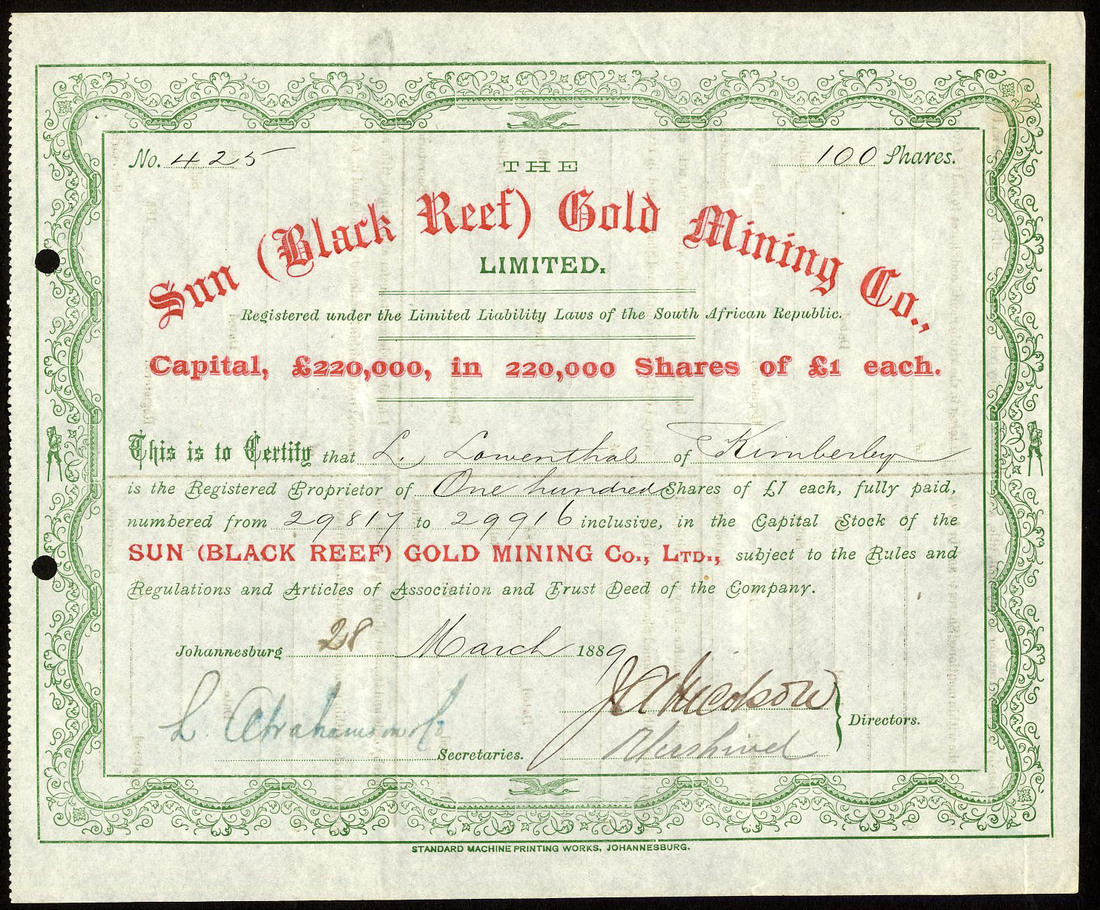 No. 425
100 Shares.
THE
Sun (Black Reef) Gold Mining Co.,
LIMITED.
Registered under the Limited Liability Laws of the South African Republic.
Capital, £220,000, in 220,000 Shares of £1 each.
This is to Certify that L. Lowenthal of Kimberley
is the Registered Proprietor of One hundred Shares of £1 each, fully paid,
numbered from 29817 to 29916 inclusive, in the Capital Stock of the
SUN (BLACK REEF) GOLD MINING Co., LTD., subject to the Rules and
Regulations and Articles of Association and Trust Deed of the Company.
Johannesburg 28 March 1889
L. Abrahamson & Co
Secretaries.
Directors.
STANDARD MACHINE PRINTING WORKS, JOHANNESBURG.